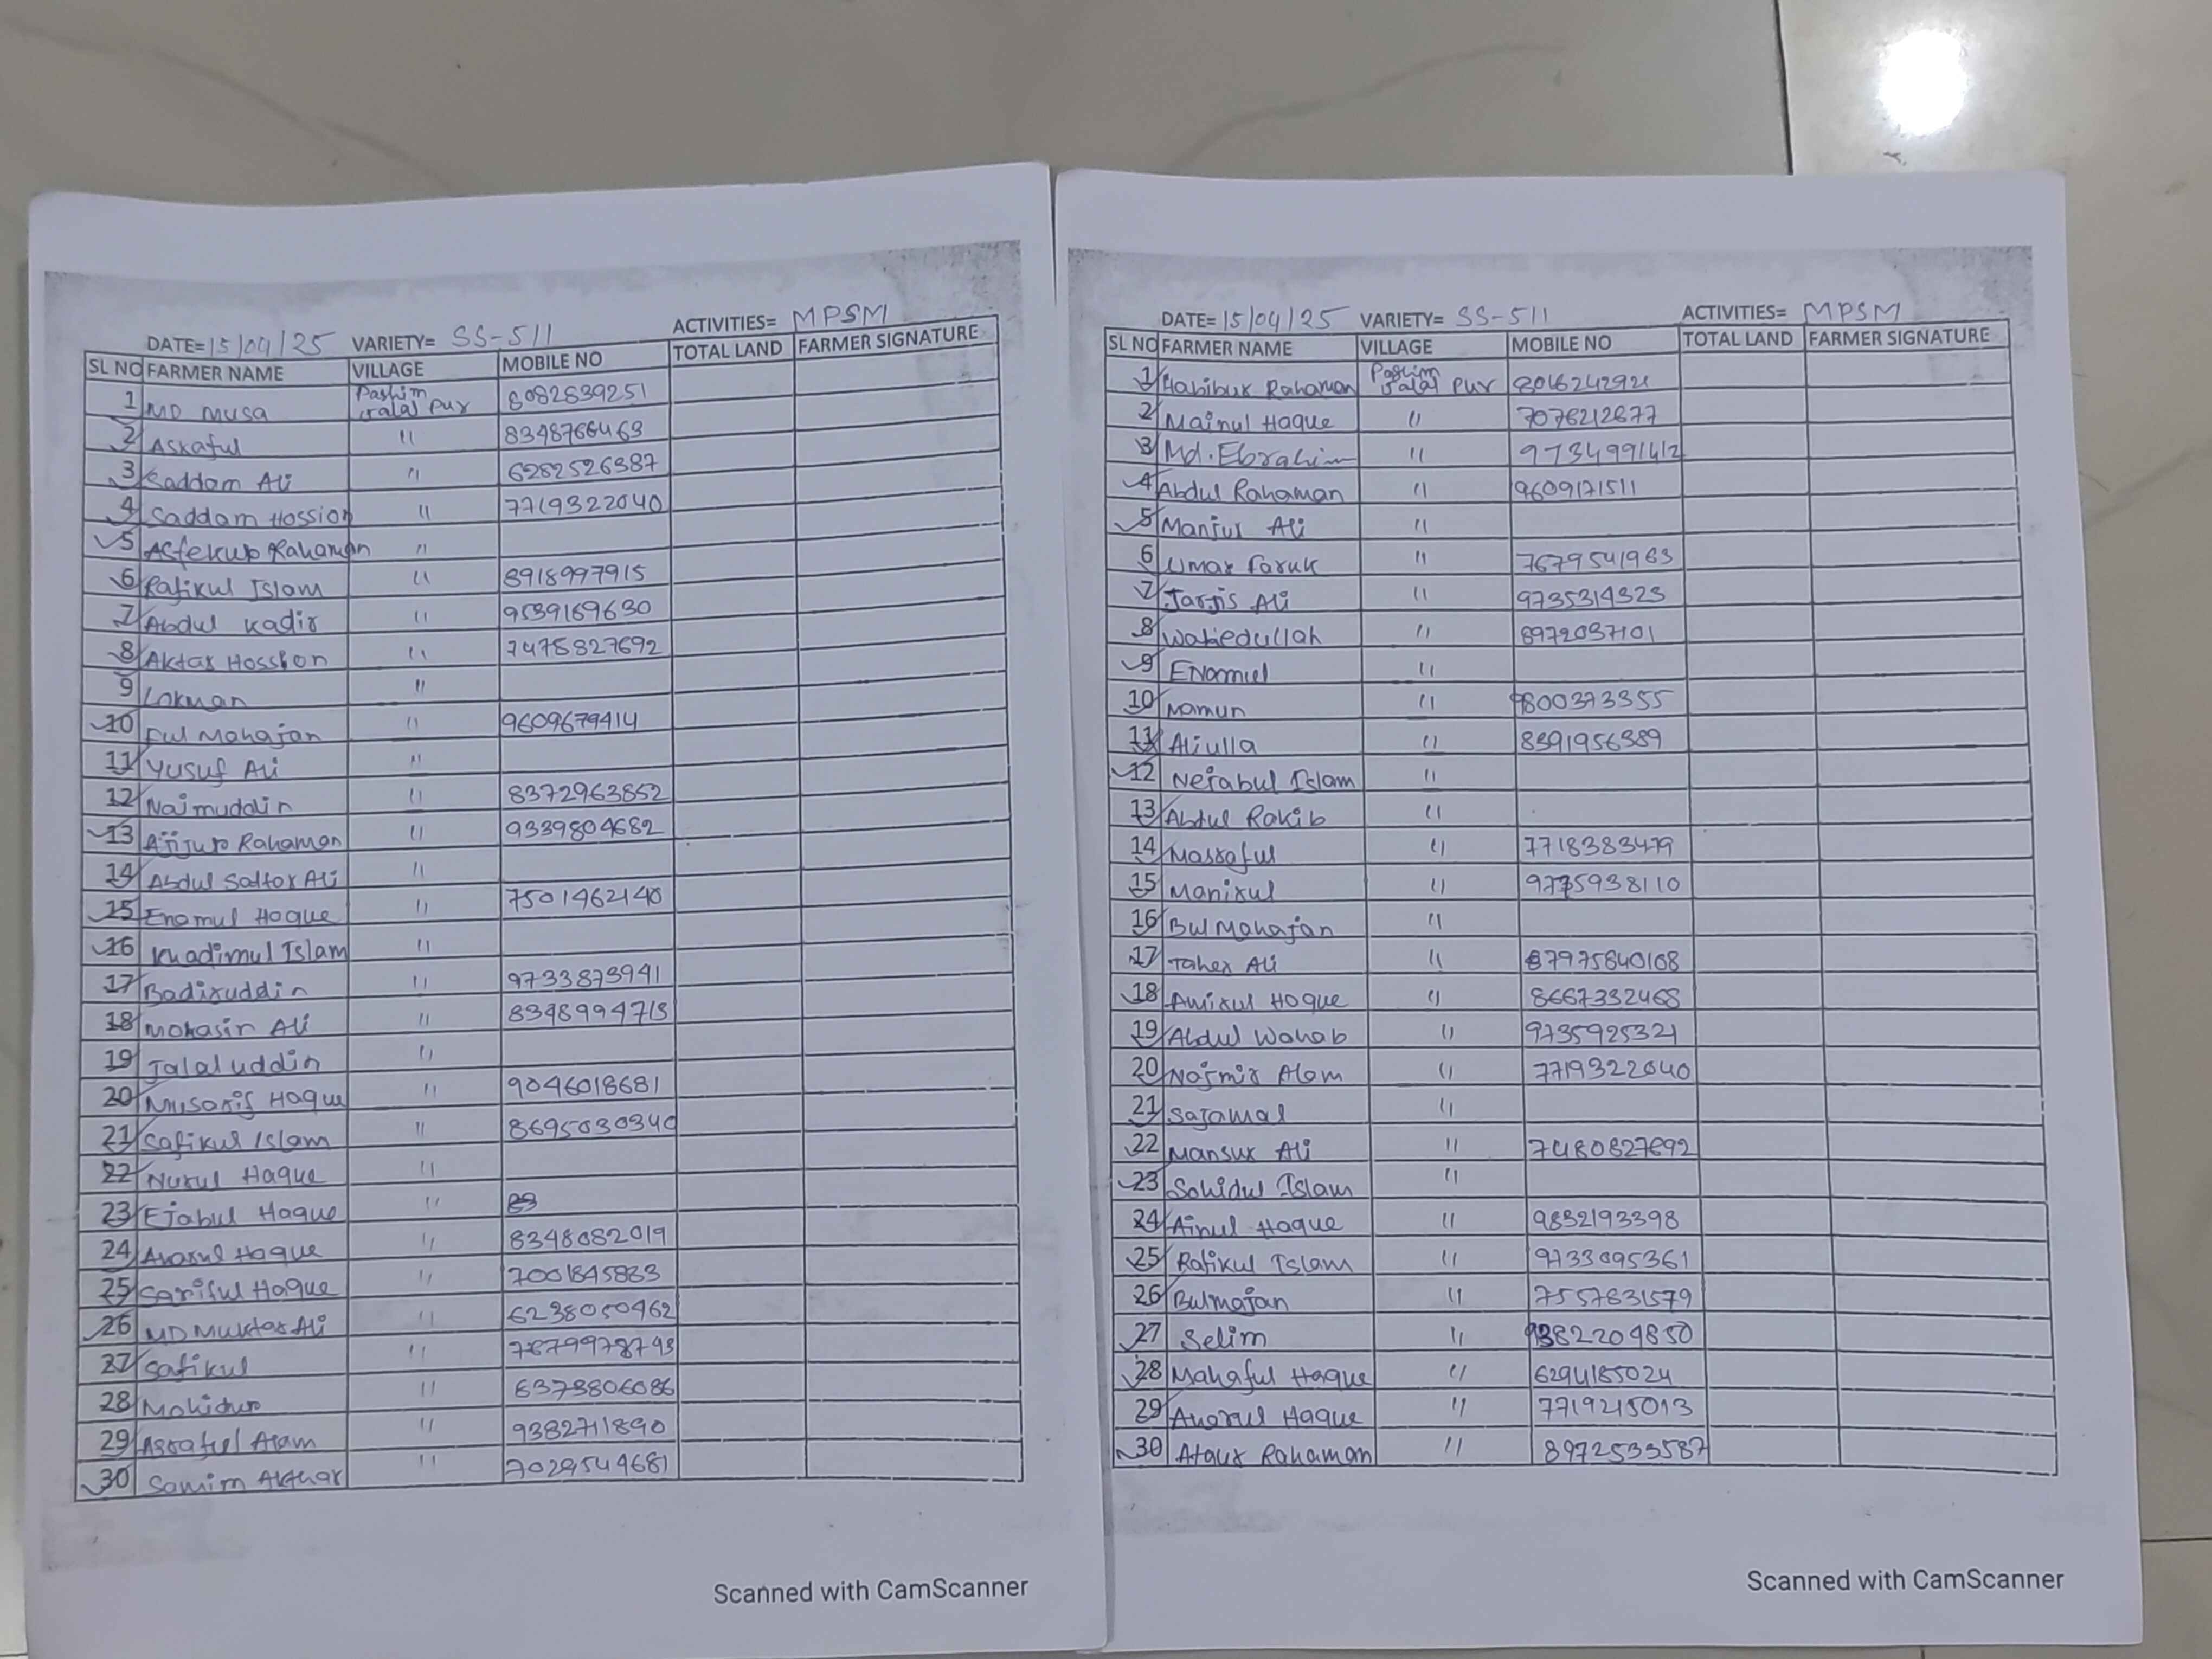 DATE= 15/04/25 VARIETY= SS-511 ACTIVITIES= MPSM
SL NO FARMER NAME VILLAGE MOBILE NO TOTAL LAND FARMER SIGNATURE
1 MD MUSA Pashim Jalal Pur 8082839251
2 Askaful " 8348766463
3 Saddam Ali " 6282526387
4 Saddam Hossion " 7719322040
5 Asfekur Rahaman "
6 Rafikul Islam " 8918997915
7 Abdul Kadir " 9539169630
8 Aktar Hossion " 7478827692
9 Lokman "
10 Ful Mohajan " 9609679414
11 Yusuf Ali "
12 Naimuddin " 8372963852
13 Ajijur Rahaman " 9339804682
14 Abdul Sattar Ali "
15 Enamul Hoque " 7501462140
16 Khadimul Islam "
17 Badiruddin " 9733873941
18 Mokasir Ali " 8348994715
19 Jalaluddin "
20 Musarif Haque " 9046018681
21 Safikul Islam " 8695030340
22 Nurul Haque "
23 Ejabul Haque "
24 Anarul Haque " 8348082019
25 Sariful Haque " 7001845883
26 MD Muktar Ali " 6238050462
27 Safikul " 7679978743
28 Mohidur " 6373806086
29 Asraful Alam " 9382711890
30 Samim Akthar " 7029544681
Scanned with CamScanner
DATE= 15/04/25 VARIETY= SS-511 ACTIVITIES= MPSM
SL NO FARMER NAME VILLAGE MOBILE NO TOTAL LAND FARMER SIGNATURE
1 Habibur Rahaman Pashim Jalal Pur 8016242921
2 Mainul Haque " 7076212677
3 Md. Ebrahim " 9734991412
4 Abdul Rahaman " 9609171511
5 Manjur Ali "
6 Umar Faruk " 7679541963
7 Jarjis Ali " 9735314323
8 Wahedullah " 8972037101
9 Enamul "
10 Mamun " 9800373355
11 Aliulla " 8391956389
12 Nejabul Islam "
13 Abdul Rakib "
14 Masraful " 7718383479
15 Manirul " 9775938110
16 Bul Mahajan "
17 Taher Ali " 87975840108
18 Amirul Hoque " 8667332468
19 Abdul Wahab " 9735925321
20 Najmir Alom " 7719322040
21 Sajamal "
22 Mansur Ali " 7480827692
23 Sohidul Islam "
24 Ainul Haque " 9832193398
25 Rafikul Islam " 9733095361
26 Bulmajan " 7557831579
27 Selim " 9382204850
28 Mahaful Haque " 6294185024
29 Anarul Haque " 7719215013
30 Ataur Rahaman " 8972533587
Scanned with CamScanner